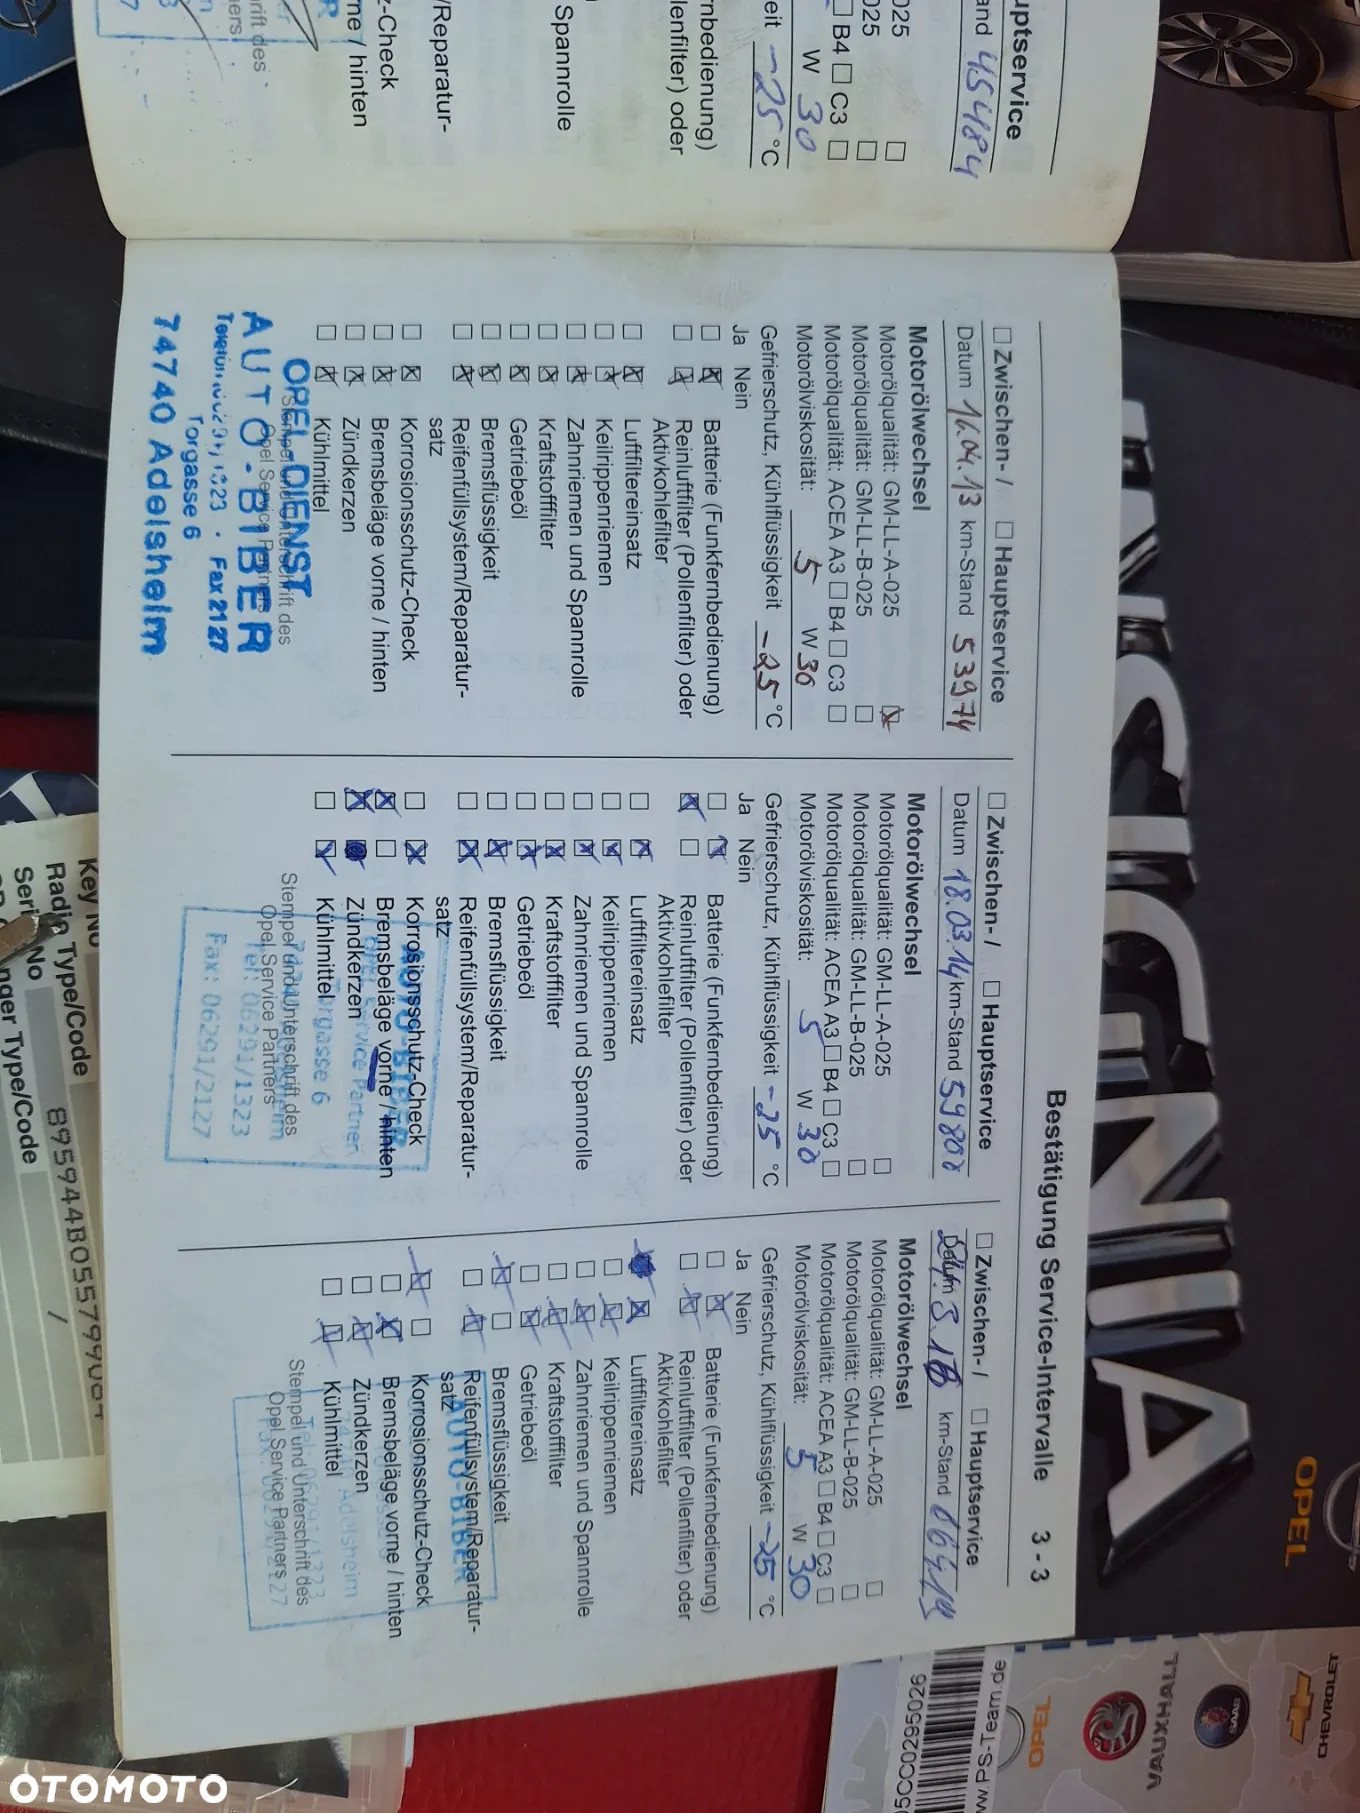 uptservice
and 45484
025
025
B4 C3
W 30
eit -25 °C
nbedienung)
lenfilter) oder
Spannrolle
/Reparatur-
z-Check
ne / hinten
Bestätigung Service-Intervalle 3 - 3
Zwischen- / Hauptservice
Datum 16.04.13 km-Stand 53974
Motorölwechsel
Motorölqualität: GM-LL-A-025
Motorölqualität: GM-LL-B-025
Motorölqualität: ACEA A3 B4 C3
Motorölviskosität: 5 W 30
Gefrierschutz, Kühlflüssigkeit -25 °C
Ja Nein
Batterie (Funkfernbedienung)
Reinluftfilter (Pollenfilter) oder
Aktivkohlefilter
Luftfiltereinsatz
Keilrippenriemen
Zahnriemen und Spannrolle
Kraftstofffilter
Getriebeöl
Bremsflüssigkeit
Reifenfüllsystem/Reparatur-
satz
Korrosionsschutz-Check
Bremsbeläge vorne / hinten
Zündkerzen
Kühlmittel
Stempel und Unterschrift des
Opel Service Partners
OPEL-DIENST
AUTO-BIBER
Fax 2127
Torgasse 6
74740 Adelsheim
Zwischen- / Hauptservice
Datum 18.03.14 km-Stand 59808
Motorölwechsel
Motorölqualität: GM-LL-A-025
Motorölqualität: GM-LL-B-025
Motorölqualität: ACEA A3 B4 C3
Motorölviskosität: 5 W 30
Gefrierschutz, Kühlflüssigkeit -25 °C
Ja Nein
Batterie (Funkfernbedienung)
Reinluftfilter (Pollenfilter) oder
Aktivkohlefilter
Luftfiltereinsatz
Keilrippenriemen
Zahnriemen und Spannrolle
Kraftstofffilter
Getriebeöl
Bremsflüssigkeit
Reifenfüllsystem/Reparatur-
satz
Korrosionsschutz-Check
Bremsbeläge vorne / hinten
Zündkerzen
Kühlmittel
Stempel und Unterschrift des
Opel Service Partners
AUTO-BIBER
Opel Service Partner
Torgasse 6
Tel: 06291/1323
Fax: 06291/2127
Zwischen- / Hauptservice
Datum km-Stand
Motorölwechsel
Motorölqualität: GM-LL-A-025
Motorölqualität: GM-LL-B-025
Motorölqualität: ACEA A3 B4 C3
Motorölviskosität: 5 W 30
Gefrierschutz, Kühlflüssigkeit -25 °C
Ja Nein
Batterie (Funkfernbedienung)
Reinluftfilter (Pollenfilter) oder
Aktivkohlefilter
Luftfiltereinsatz
Keilrippenriemen
Zahnriemen und Spannrolle
Kraftstofffilter
Getriebeöl
Bremsflüssigkeit
Reifenfüllsystem/Reparatur-
satz
Korrosionsschutz-Check
Bremsbeläge vorne / hinten
Zündkerzen
Kühlmittel
Stempel und Unterschrift des
Opel Service Partners
AUTO-BIBER
Adelsheim
INSIGNIA
OPEL
Key No
Radio Type/Code
Serial No
nger Type/Code
CHEVROLET
SAAB
VAUXHALL
OPEL
w/PS-Team.de
OTOMOTO